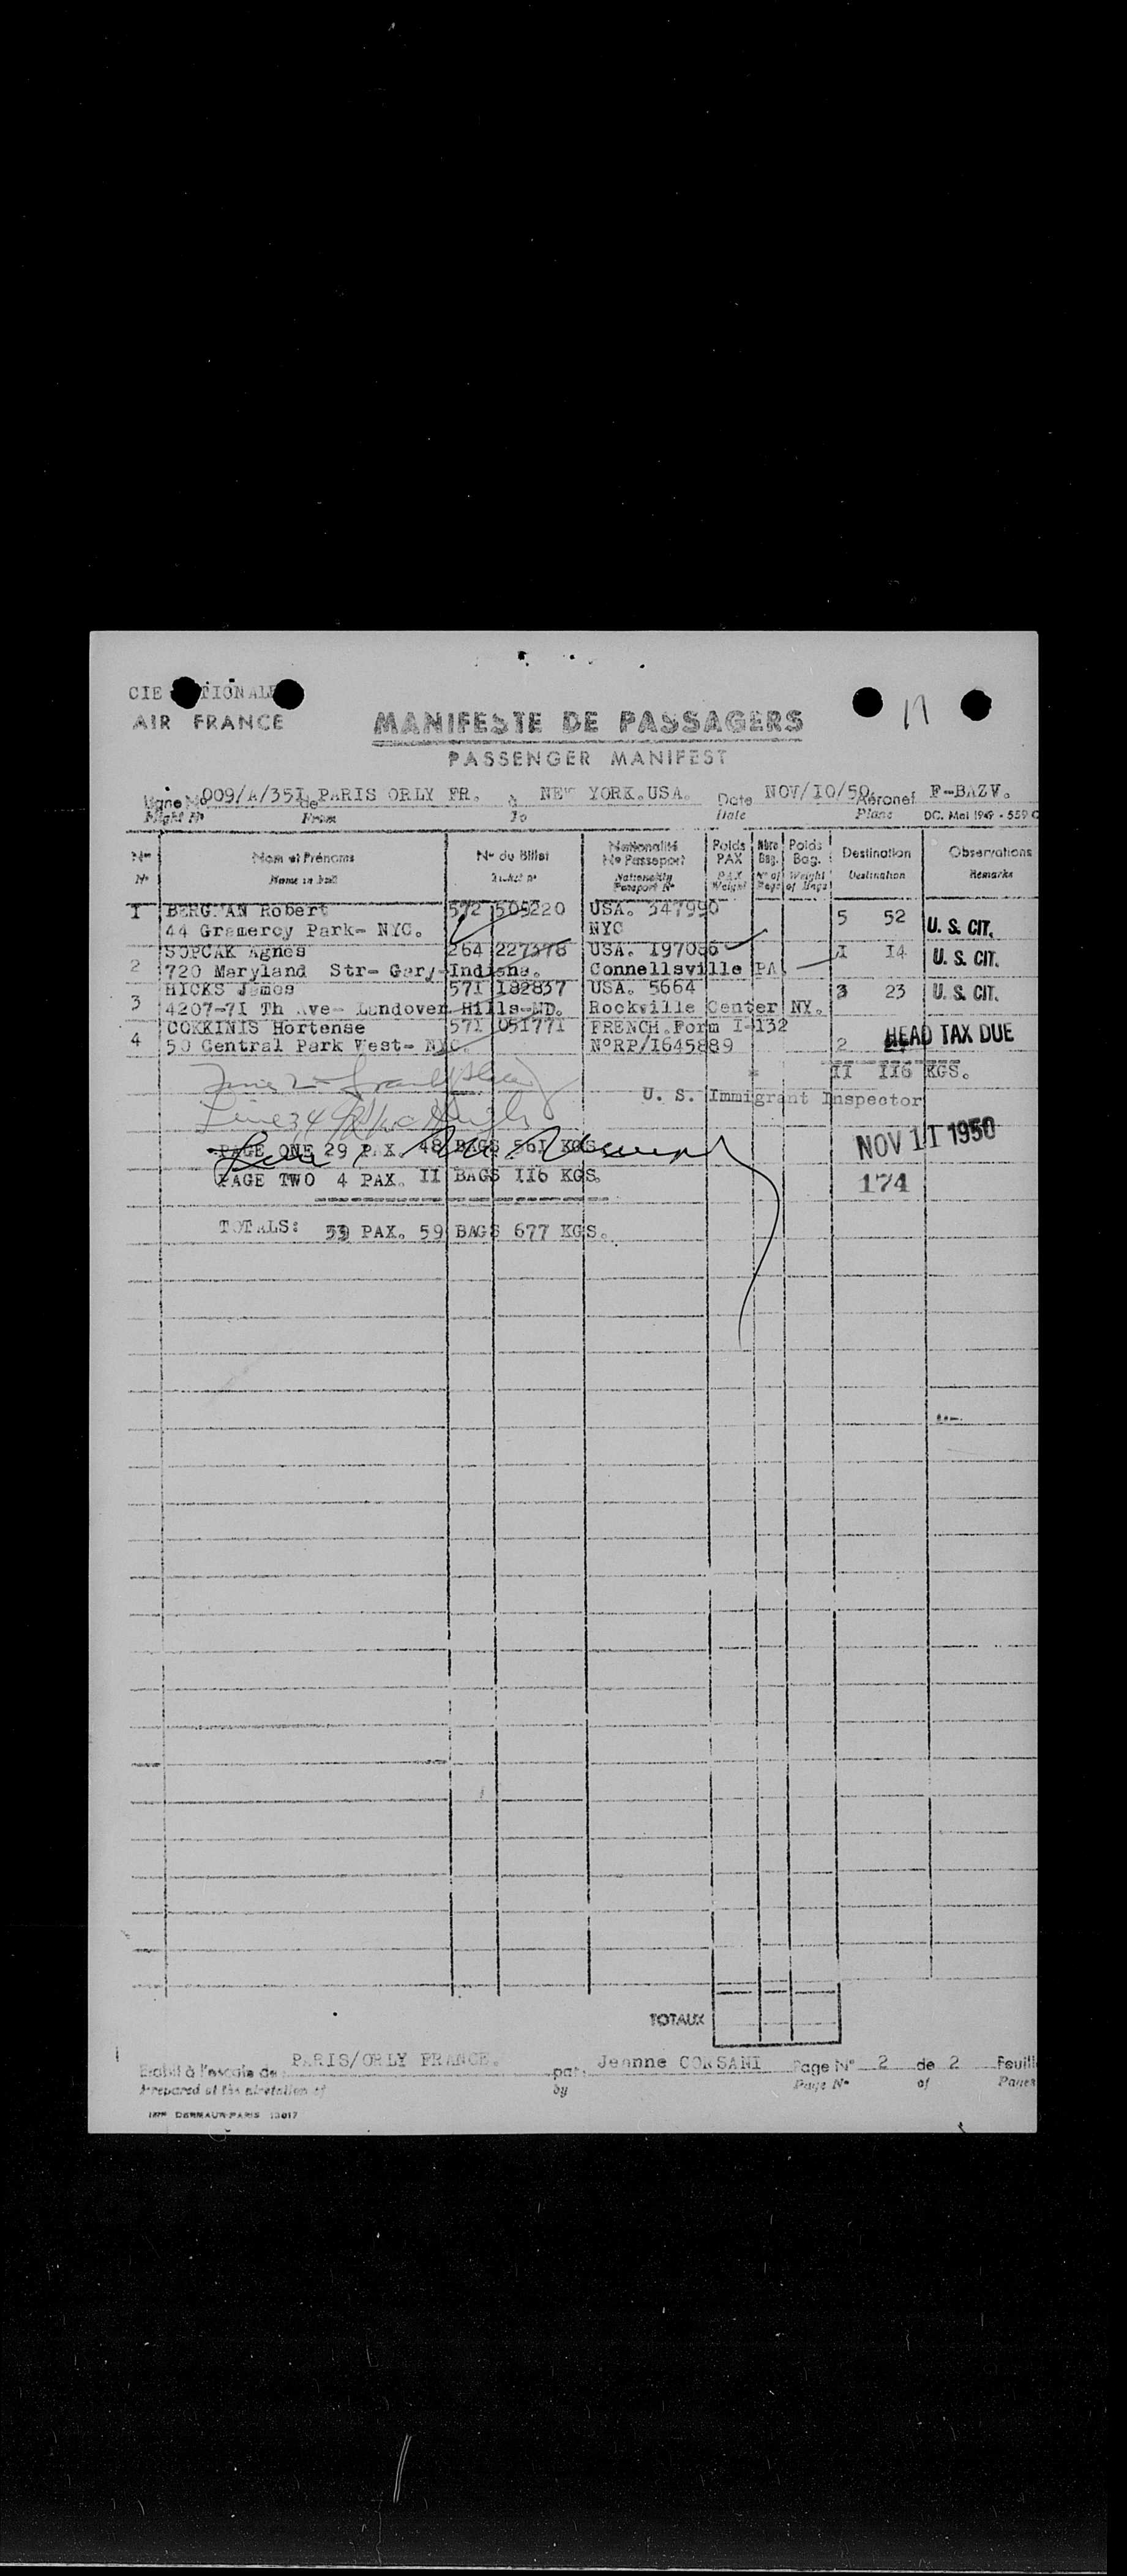 CIE NATIONALE
AIR FRANCE
MANIFESTE DE PASSAGERS
PASSENGER MANIFEST
Ligne No 009/A/35I de PARIS ORLY FR. à NEW YORK.USA. Date NOV/I0/50 Aéronef F-BAZV.
Flight No From To Date Plane DC. Mai 1949 - 559 C
No Nom et Prénoms No du Billet Nationalité No Passeport Poids PAX Nbre Bag. Poids Bag. Destination Observations
No Name in full Ticket no Nationality Passport No PAX Weight No of Bags Weight of Bags Destination Remarks
I BERGMAN Robert 572 505220 USA. 347990 5 52 U. S. CIT.
44 Gramercy Park- NYC. NYC
2 SOPCAK Agnes 264 227378 USA. I97086 I I4 U. S. CIT.
720 Maryland Str- Gary-Indiana. Connellsville PA
3 HICKS James 57I I82837 USA. 5664 3 23 U. S. CIT.
4207-7I Th Ave- Landover Hills-MD. Rockville Center NY.
4 COKKINIS Hortense 57I 05I77I FRENCH.Form I-I32 HEAD TAX DUE
50 Central Park West- NYC. N°RP/I645889 2
II II6 KGS.
U. S. Immigrant Inspector
PAGE ONE 29 PAX. 48 BAGS 56I KGS
NOV 11 1950
PAGE TWO 4 PAX. II BAGS II6 KGS.
174
TOTALS: 33 PAX. 59 BAGS 677 KGS.
TOTAUX
Etabli à l'escale de PARIS/ORLY FRANCE. par Jeanne CORSANI Page No 2 de 2 Feuill
Prepared at the airstation of by Page No of Pages
IMP DERMAUR-PARIS 13017